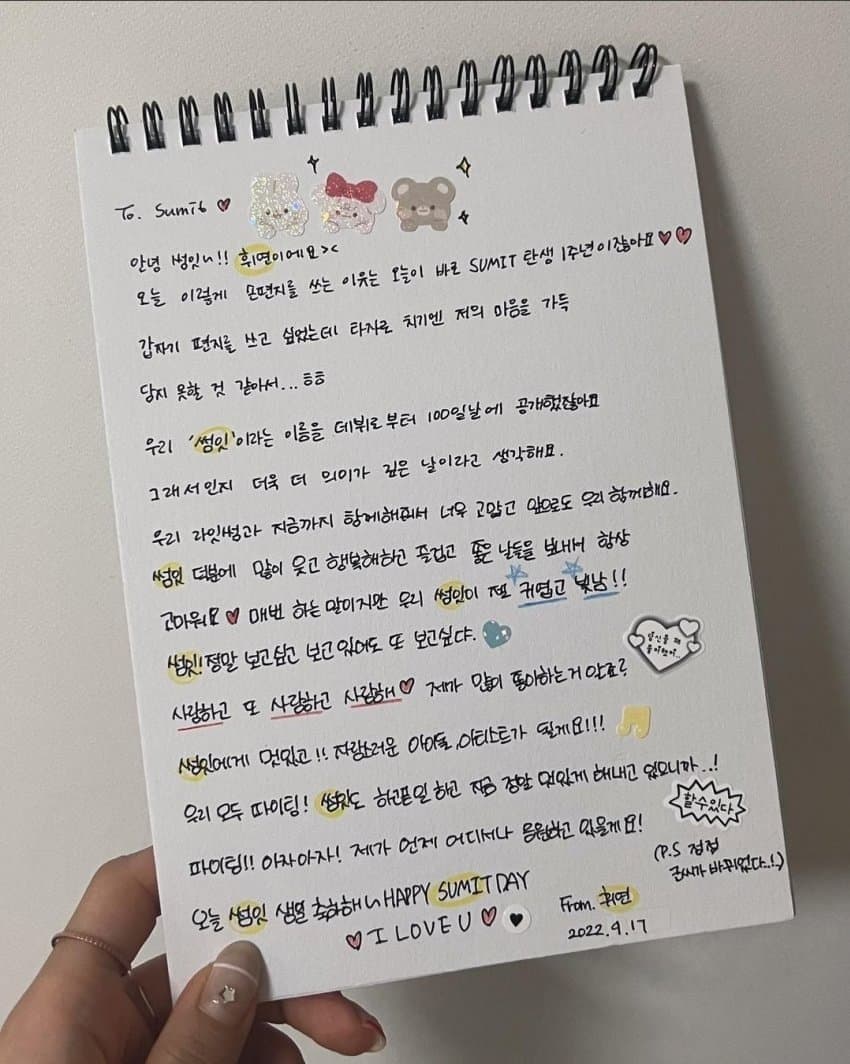 To. Sumit ♥
안녕 썸잇~!! 휘연이에요><
오늘 이렇게 손편지를 쓰는 이유는 오늘이 바로 SUMIT 탄생 1주년이잖아요♥♥
갑자기 편지를 쓰고 싶었는데 타자로 치기엔 저의 마음을 가득
담지 못할 것 같아서...ㅎㅎ
우리 '썸잇'이라는 이름을 데뷔로부터 100일날에 공개했잖아요
그래서인지 더욱 더 의미가 깊은 날이라고 생각해요.
우리 라잇썸과 지금까지 함께해줘서 너무 고맙고 앞으로도 우리 함께해요.
썸잇 덕분에 많이 웃고 행복해하고 즐겁고 좋은 날들을 보내서 항상
고마워요♥ 매번 하는 말이지만 우리 썸잇이 제일 귀엽고 빛남!!
썸잇! 정말 보고싶고 보고있어도 또 보고싶다.
당신을 꽤
좋아했어..
사랑하고 또 사랑하고 사랑해♥ 제가 많이 좋아하는거 알죠?
썸잇에게 멋있고!! 자랑스러운 아이돌,아티스트가 될게요!!!
우리 모두 파이팅! 썸잇도 하고픈일 하고 지금 정말 멋있게 해내고 있으니까..!
할수있다
파이팅!! 아자아자! 제가 언제 어디서나 응원하고 있을게요!
(P.S 점점
글씨가 바뀌었다..!)
오늘 썸잇 생일 축하해~ HAPPY SUMIT DAY
♥ I LOVE U ♥
From. 휘연
2022.9.17